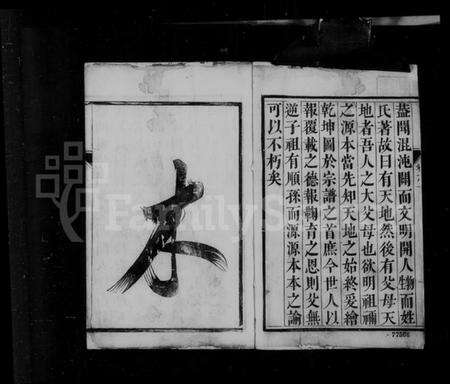 盖聞混沌闢而文明開人物而姓
氏著故曰有天地然後有父母天
地者吾人之大父母也欲明祖禰
之源本當先知天地之始終爰繪
乾坤圖於宗譜之首庶今世人以
報覆載之德報鞠育之恩則父無
逆子祖有順孫而源源本本之論
可以不朽矣
本
FamilyS
77566